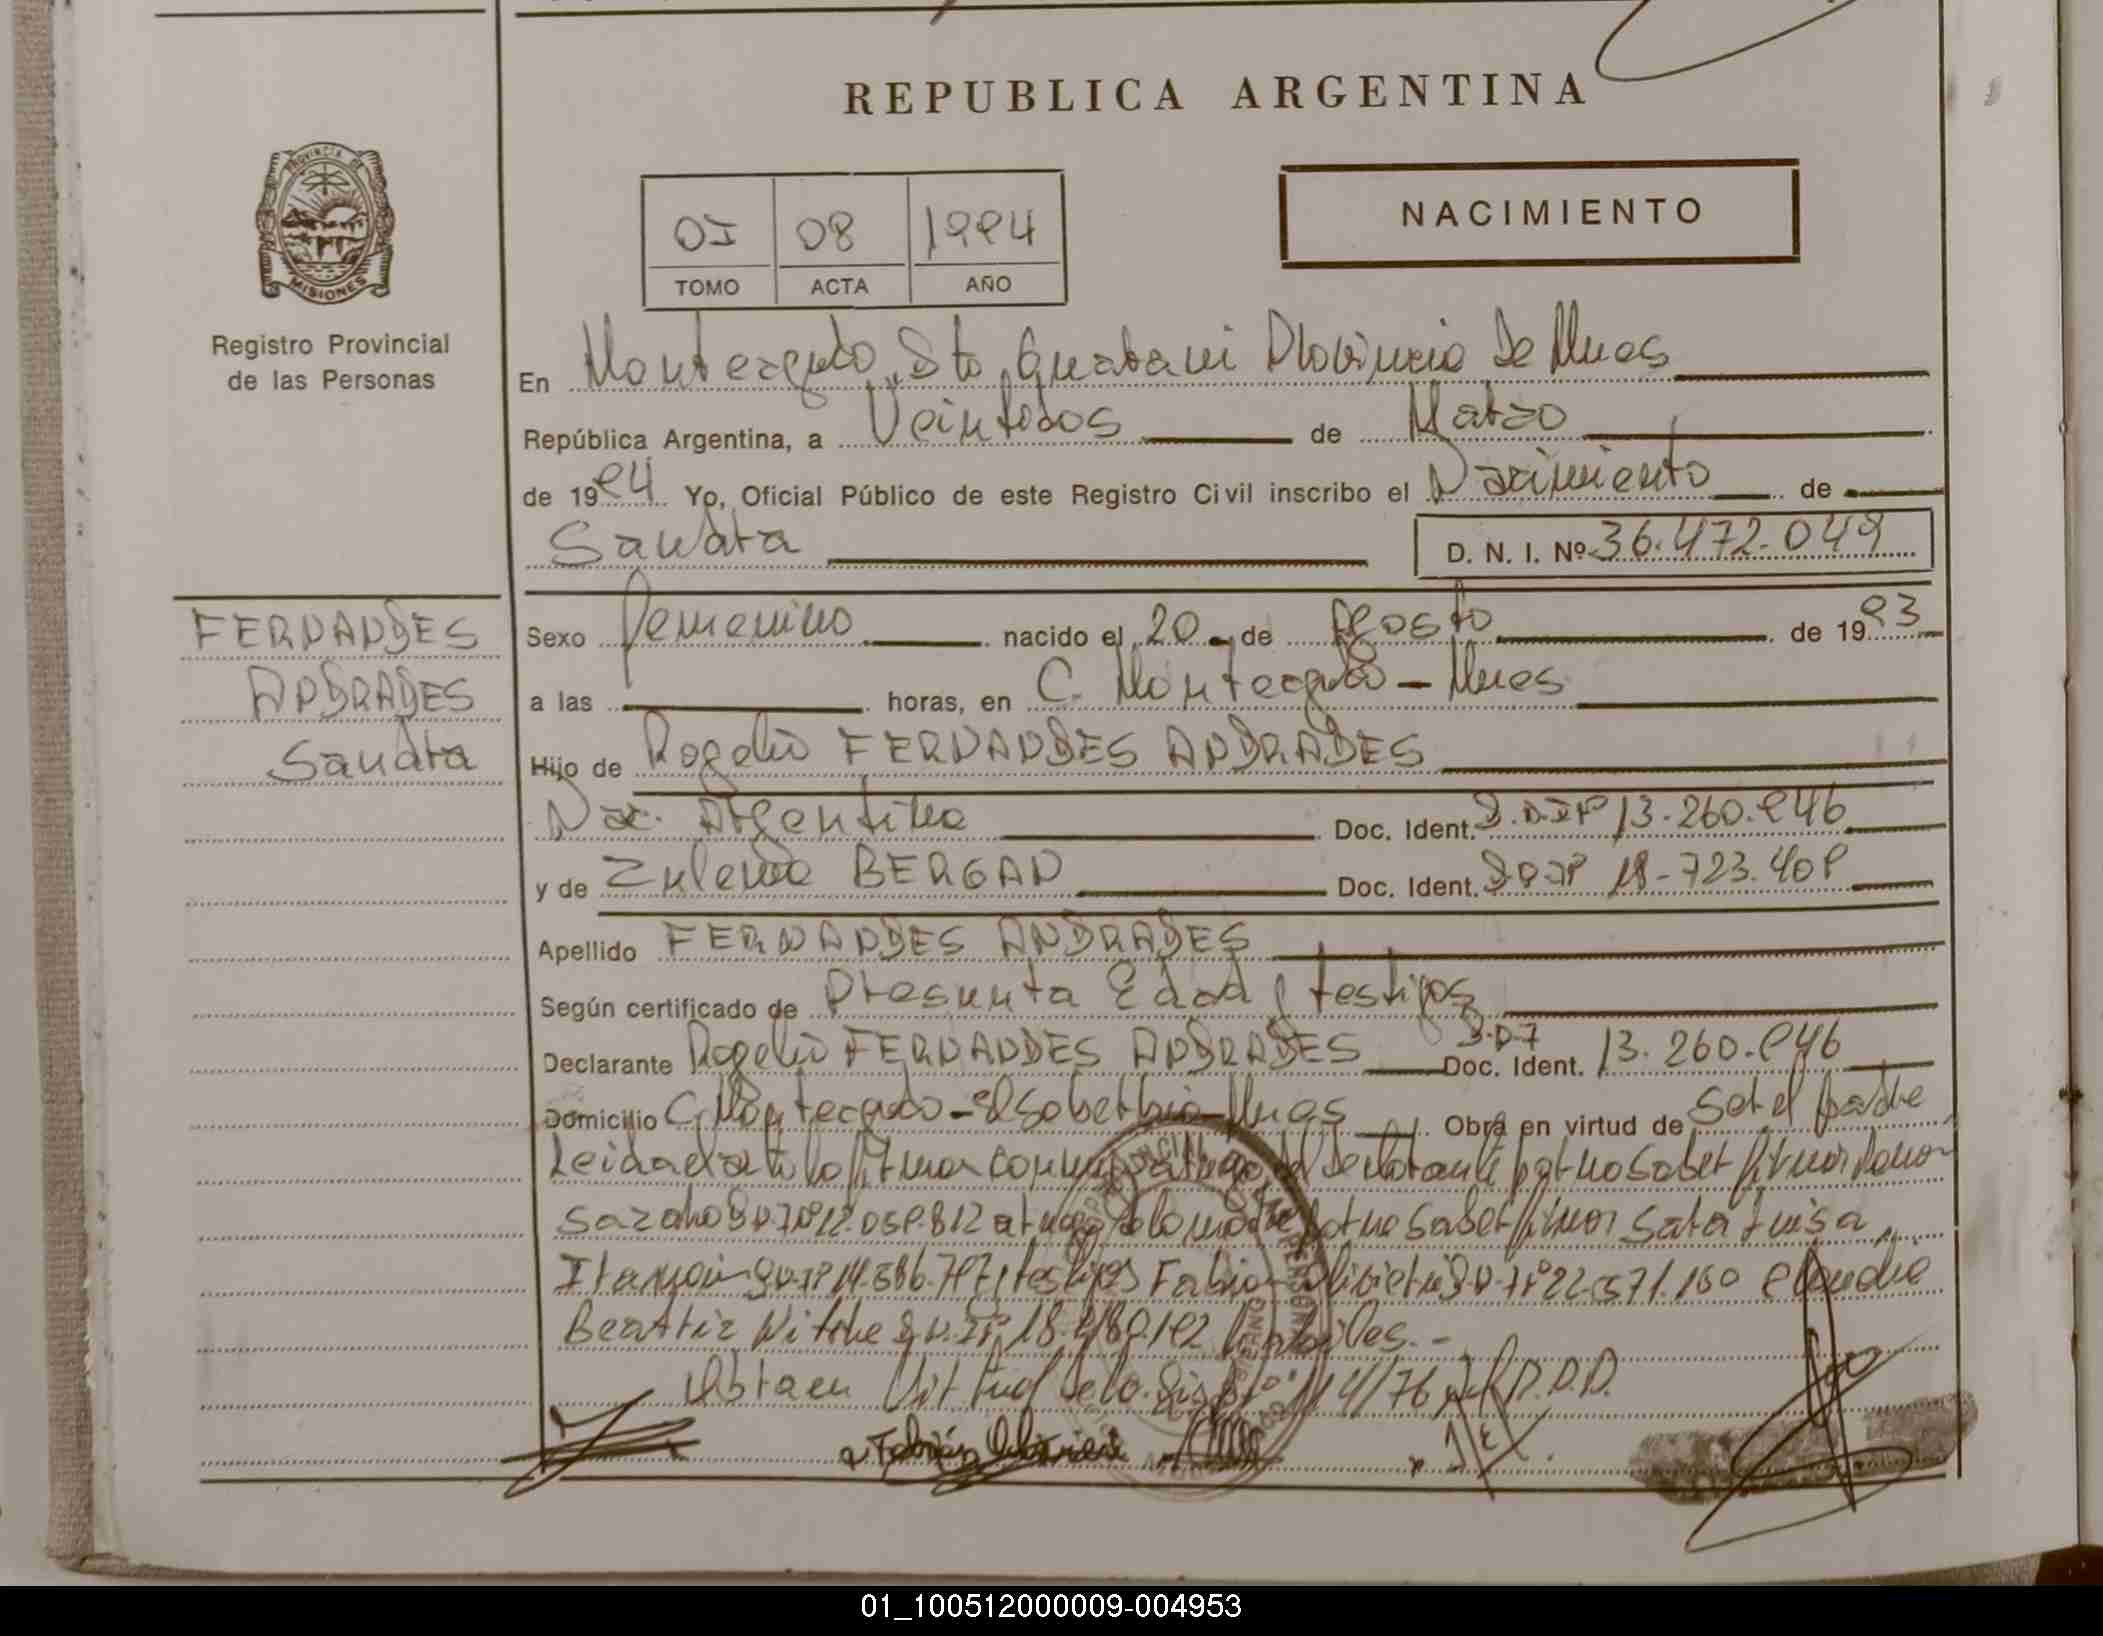 REPUBLICA ARGENTINA
PROVINCIA DE
MISIONES
Registro Provincial
de las Personas
OI 08 1994
TOMO ACTA AÑO
NACIMIENTO
En Monteagudo, Dto. Guarani Provincia De Mnes
República Argentina, a Veintidos de Marzo
de 1994 Yo, Oficial Público de este Registro Civil inscribo el Nacimiento de
Sandra D. N. I. Nº 36.472.049
FERNANDES
ANDRADES
Sandra
Sexo femenino nacido el 20 de Agosto de 1993
a las horas, en C. Monteagudo - Mnes
Hijo de Rogelio FERNANDES ANDRADES
Nac. Argentina Doc. Ident. D.N.Iº 13.260.946
y de Zulema BERGAN Doc. Ident. D.N.Iº 18-723.409
Apellido FERNANDES ANDRADES
Según certificado de Presunta Edad y testigos
Declarante Rogelio FERNANDES ANDRADES D.N.I Doc. Ident. 13.260.946
Domicilio C. Monteagudo - El Soberbio - Mnes Obra en virtud de Ser el padre
Leida el acta lo firman conmigo a ruego del Declarante por no saber firmar Ramon
D.N.Iº 12.059.812 a ruego de la madre por no Saber firmar Sara Luisa
testigos Fabian D.N.Iº 22.571.160 Claudia
Beatriz D.N.Iº 18.480.192 habiles.-
Obra en Virtud de la Disp. Nº 114/76 R.P.P.
01_100512000009-004953